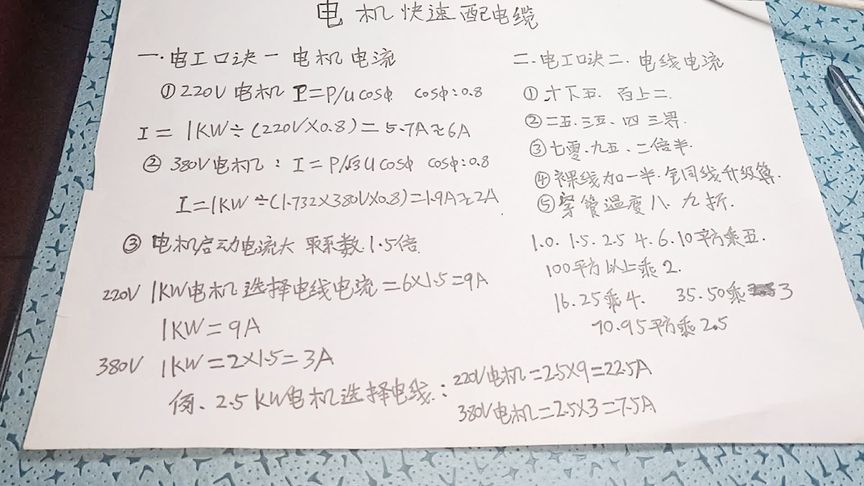 电机快速配电缆
一.电工口诀一 电机电流
①220V电机 I=P/Ucosφ cosφ:0.8
I= 1KW÷(220V×0.8)=5.7A≈6A
② 380V电机: I=P/√3Ucosφ cosφ:0.8
I=1KW÷(1.732×380V×0.8)=1.9A≈2A
③ 电机启动电流大 取系数1.5倍
220V 1KW电机选择电线电流=6×1.5=9A
1KW=9A
380V 1KW=2×1.5=3A
例、2.5KW电机选择电线:220V电机=2.5×9=22.5A
380V电机=2.5×3=7.5A
二.电工口诀二.电线电流
①十下五.百上二.
②二五.三五.四三界.
③七零.九五.二倍半.
④裸线加一半.铜线升级算.
⑤穿管温度八.九折.
1.0.1.5.2.5 4.6.10平方乘五.
100平方以上乘2.
16.25乘4. 35.50乘3
70.95平方乘2.5